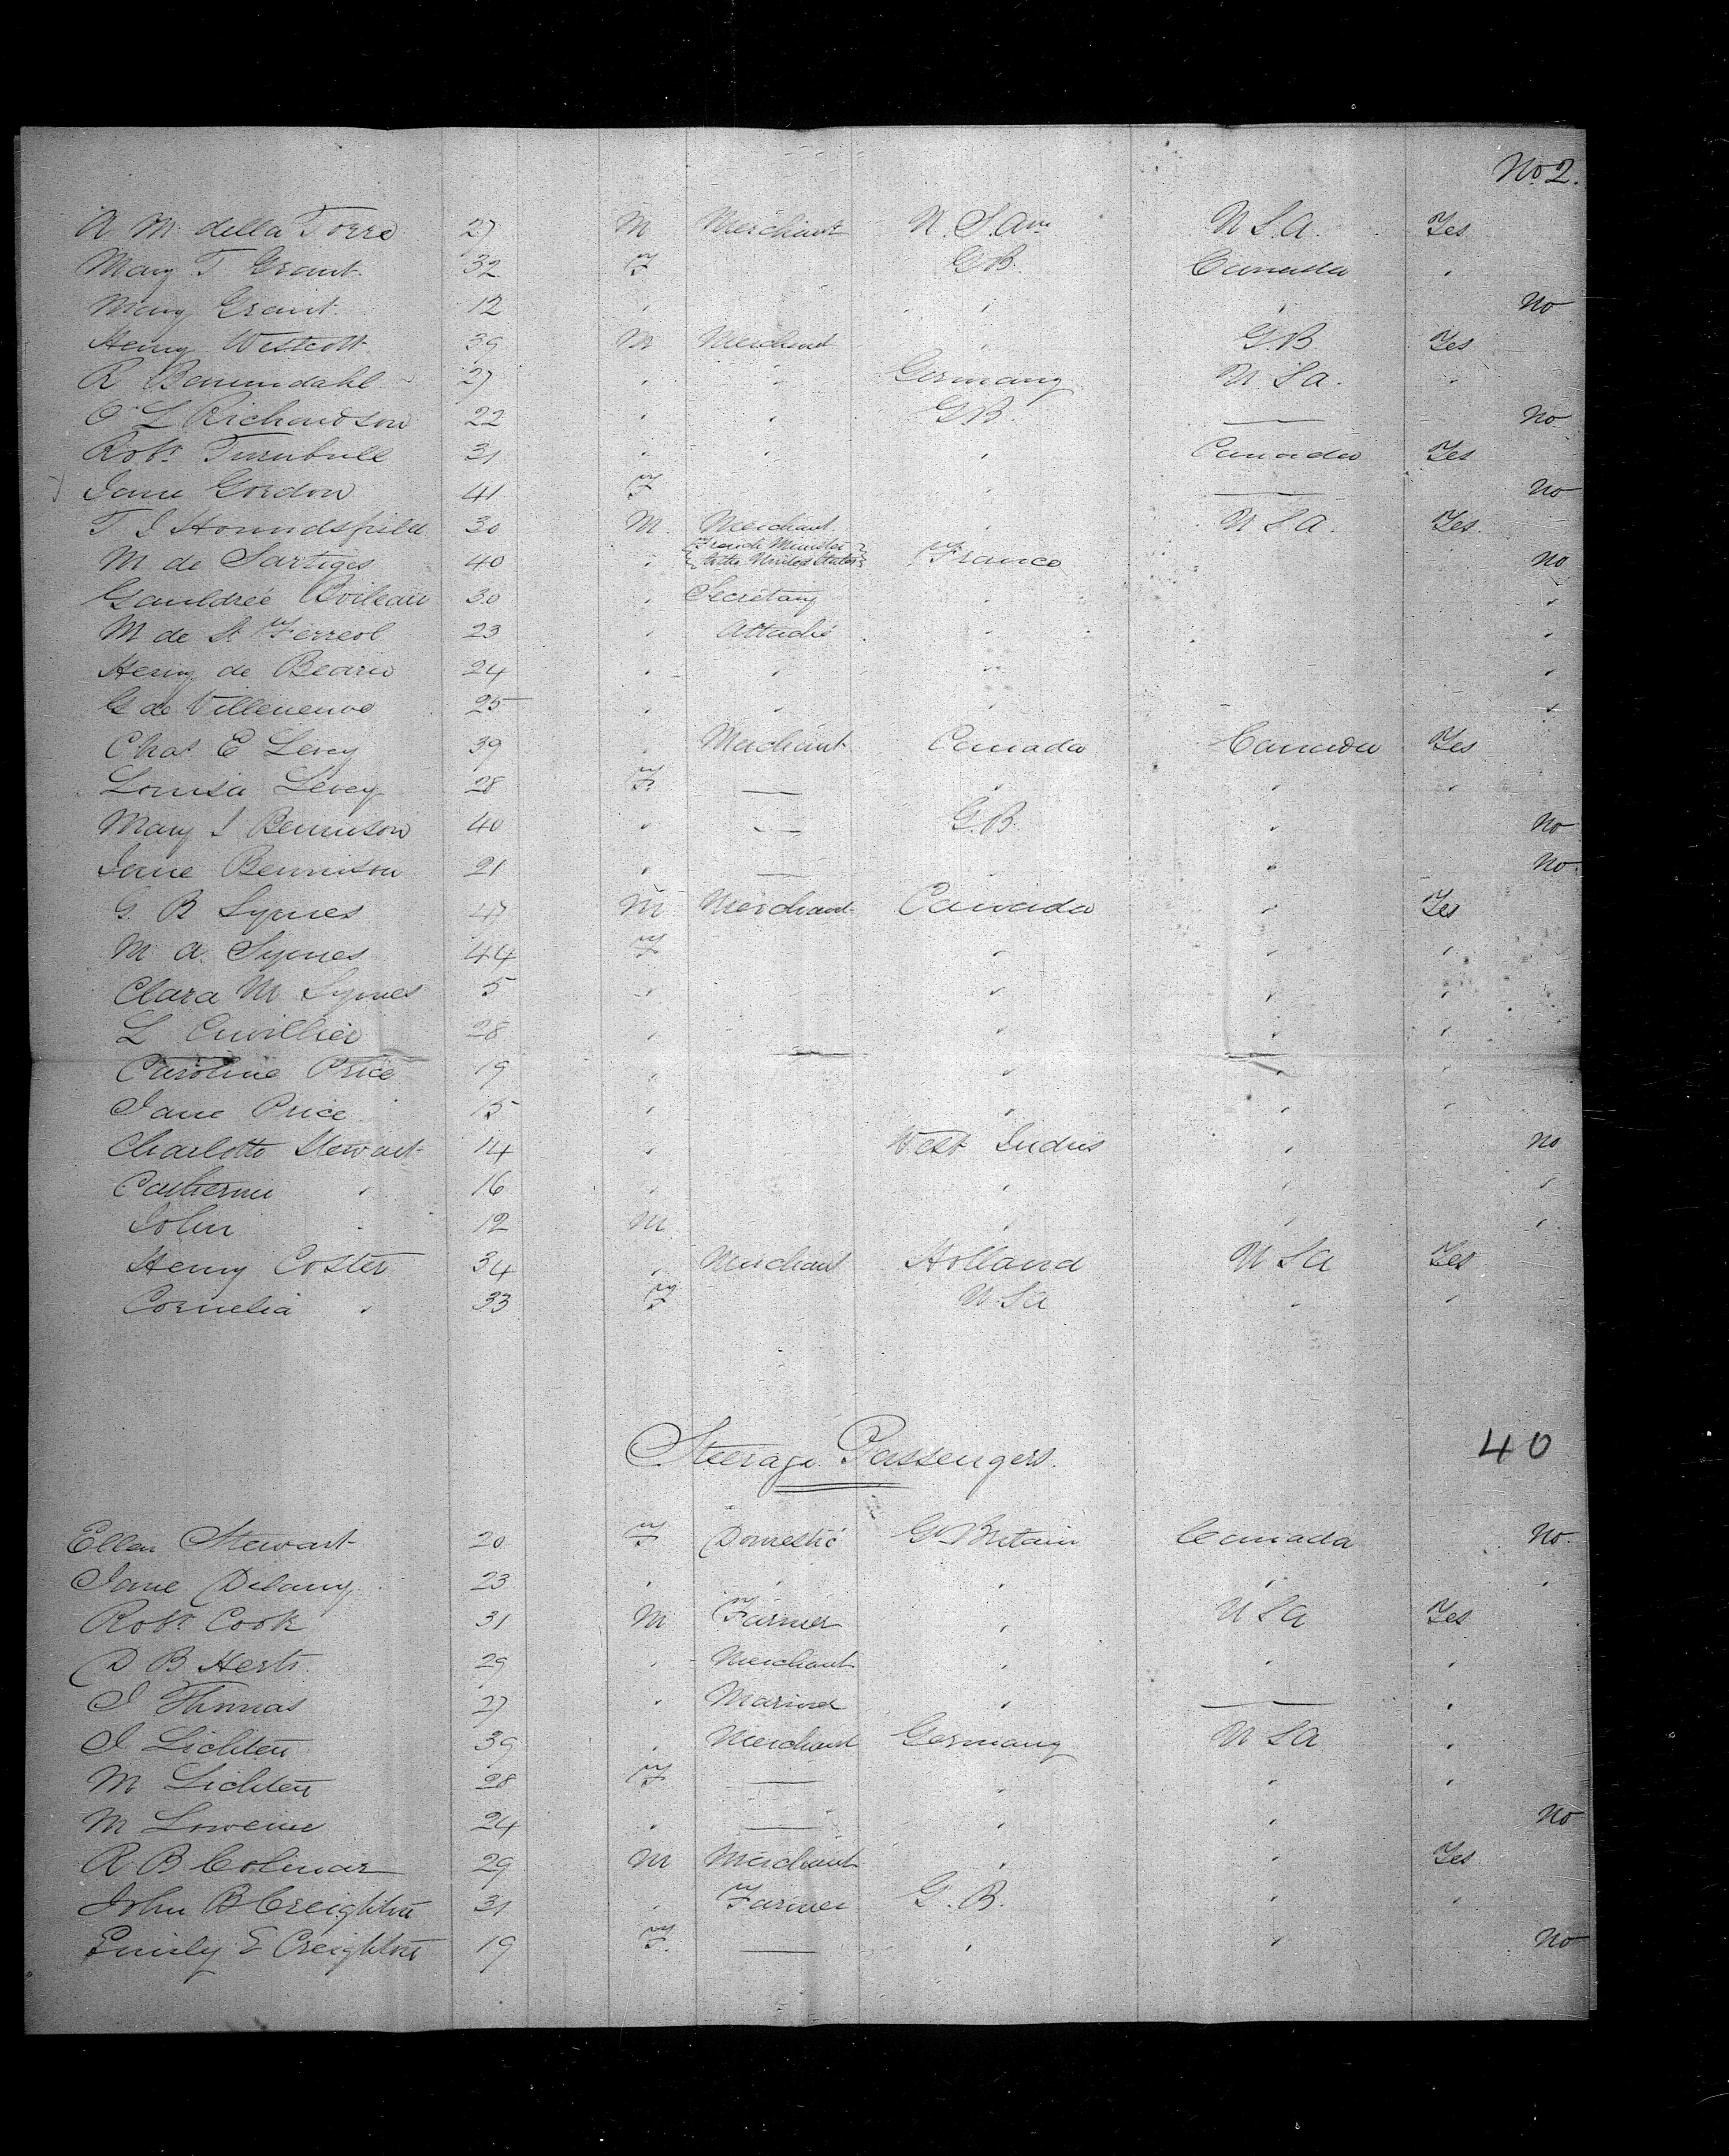 No 2.
A M della Torre 27 M Merchant U. S. Am U S. A. Yes
Mary T Grant 32 F G B. Canada "
Mary Grant 12 " " " No
Henry Westcott 39 M Merchant " G. B Yes
R Barundahl 27 " " Germany U S a. "
O L Richardson 22 " " G. B. — No
Robt Turnbull 31 " " " Canada Yes
Jane Gordon 41 F " — No
T J Houndsfield 30 M Merchant " U S A. Yes
M de Sartiges 40 " {French Minister to the United States} France No
Gauldreé Boileau 30 " Secretary " "
M de St Ferreol 23 " Attaché " "
Henry de Bearn 24 " " " "
G de Villeneuve 25 " " " "
Chas E Levey 39 " Merchant Canada Canada Yes
Louisa Levey 28 F — " " "
Mary J Bennison 40 " — G. B. " No
Jane Bennison 21 " — " " No
G. B Symes 47 M Merchant Canada " Yes
M A. Symes 44 F " " "
Clara M Symes 5 " " " "
L Cuvillier 28 " " " "
Caroline Price 19 " " " "
Jane Price 15 " " " "
Charlotte Stewart 14 " West Indies " No
Catherine " 16 " " " "
John " 12 M " " "
Henry Coster 34 " Merchant Holland U S a Yes
Cornelia " 33 F U. S a " "
Steerage Passengers.
40
Ellen Stewart 20 F Domestic Gt Britain Canada No
Jane Delany 23 " " " " "
Robt Cook 31 M Farmer " U S a Yes
D B Herts 29 " Merchant " " "
J Thomas 27 " Mariner " — "
J Lichten 39 " Merchant Germany U S A "
M Lichten 28 F — " " "
M 24 " — " " No
R B Colmar 29 M Merchant " " Yes
John B Creighton 31 " Farmer G. B. " "
Emily E Creighton 19 F. — " " No